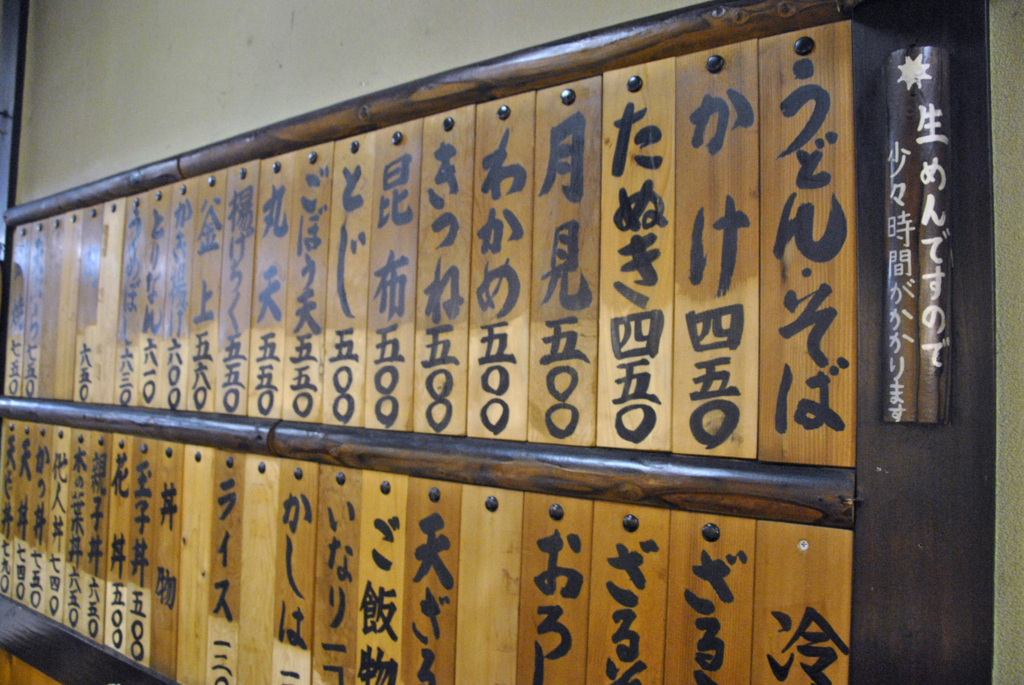 生めんですので
少々時間がかかります
うどん・そば
かけ四五〇
たぬき四五〇
月見五〇〇
わかめ五〇〇
きつね五〇〇
昆布五〇〇
とじ五〇〇
ごぼう天五五〇
丸天五五〇
揚げちく五五〇
釜上五六〇
かき揚げ六〇〇
とりなん六一〇
六三〇
六五〇
七五〇
七五〇
冷
ざる
ざるそ
おろし
天ざる
ご飯物
いなり一
かしは一
ライス一二〇
丼物
玉子丼五八〇
花丼五〇〇
親子丼六五〇
木の葉丼六五〇
他人丼七四〇
かつ丼七五〇
天丼七四〇
七九〇